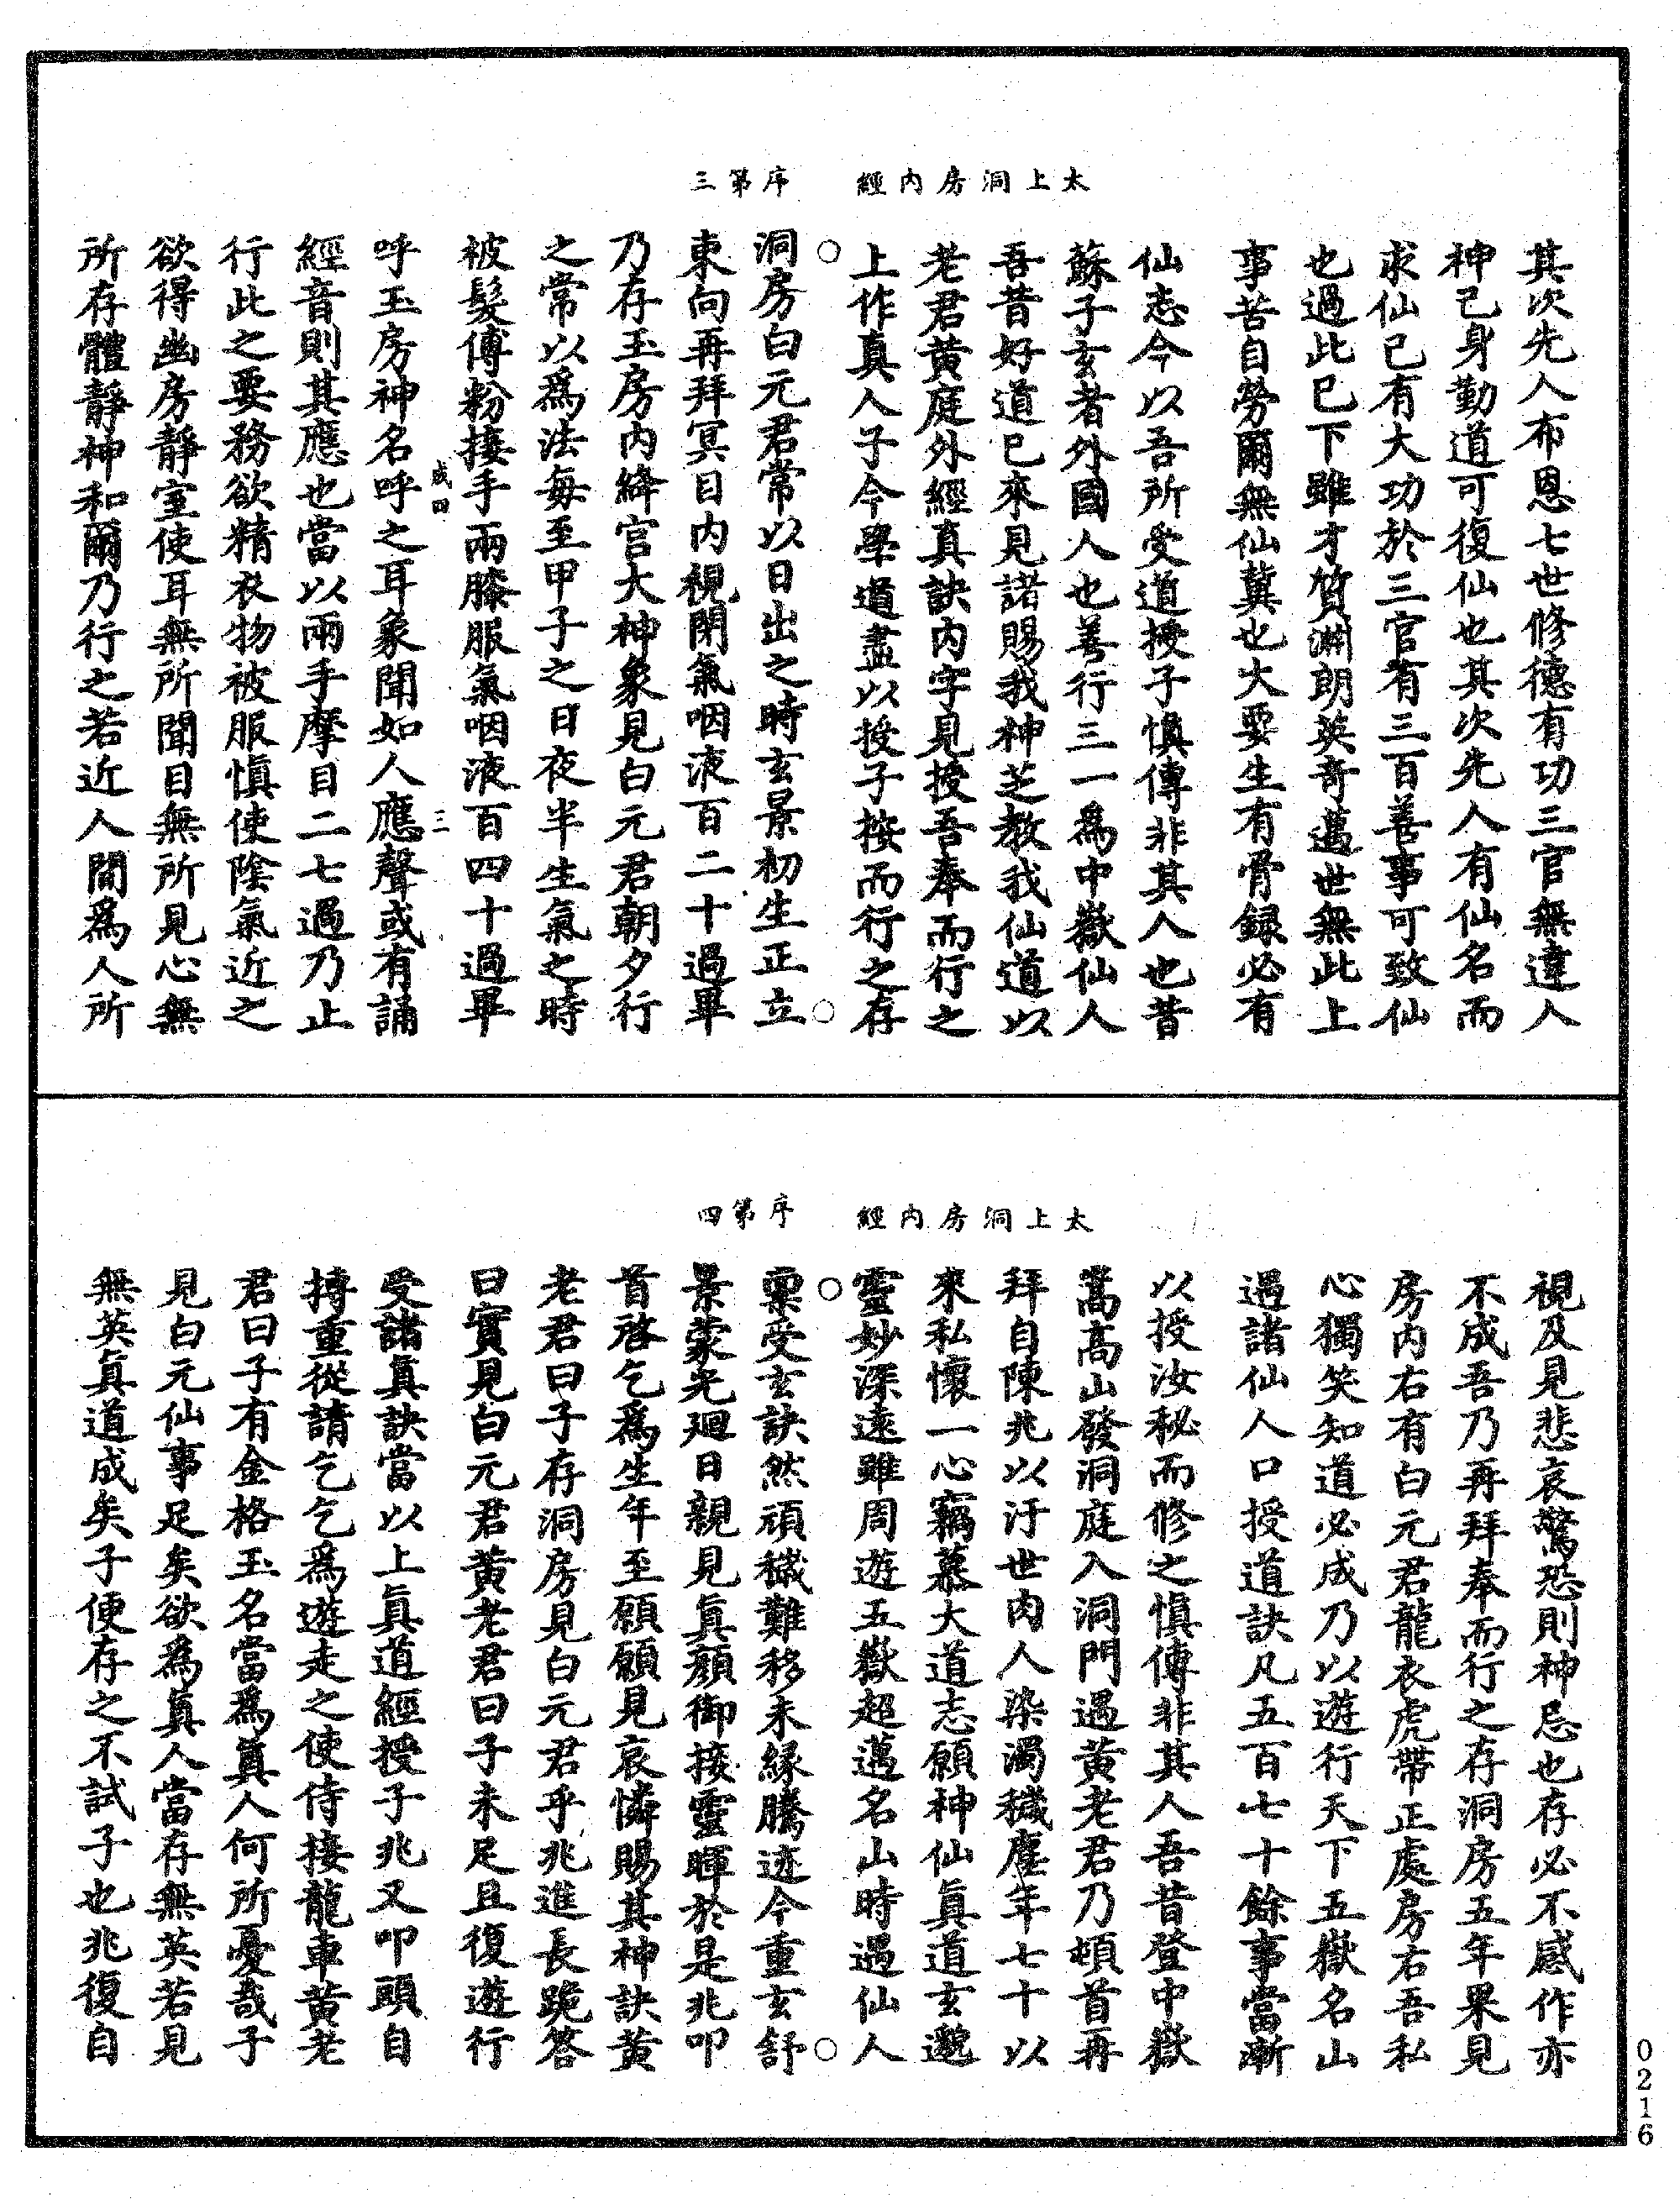 太上洞房內經　序第三
其次先人布恩七世修德有功三官無違人
神己身勤道可復仙也其次先人有仙名而
求仙已有大功於三官有三百善事可致仙
也過此已下雖才質淵朗英奇邁世無此上
事苦自勞爾無仙冀也大要生有骨録必有
仙志今以吾所受道授子慎傳非其人也昔
蘇子玄者外國人也善行三一爲中嶽仙人
吾昔好道已來見諸賜我神芝教我仙道以
老君黄庭外經真訣内字見授吾奉而行之
上作真人子今學道盡以授子按而行之存
洞房白元君常以日出之時玄景初生正立
東向再拜冥目内視閉氣咽液百二十過畢
乃存玉房内絳宫大神象見白元君朝夕行
之常以爲法每至甲子之日夜半生氣之時
被髮傅粉接手兩膝服氣咽液百四十過畢
咸四　三
呼玉房神名呼之耳象聞如人應聲或有誦
經音則其應也當以兩手摩目二七過乃止
行此之要務欲精衣物被服慎使陰氣近之
欲得幽房靜室使耳無所聞目無所見心無
所存體靜神和爾乃行之若近人間爲人所
太上洞房內經　序第四
視及見悲哀驚恐則神忌也存必不感作亦
不成吾乃再拜奉而行之存洞房五年果見
房内右有白元君龍衣虎帶正處房右吾私
心獨笑知道必成乃以遊行天下五嶽名山
過諸仙人口授道訣凡五百七十餘事當漸
以授汝秘而修之慎傳非其人吾昔登中嶽
嵩高山發洞庭入洞門過黄老君乃頓首再
拜自陳兆以汙世肉人染濁穢塵年七十以
來私懷一心竊慕大道志願神仙真道玄邈
靈妙深遠雖周遊五嶽超邁名山時過仙人
稟受玄訣然頑穢難移未緣騰迹今重玄舒
景蒙光廻日親見真顏御接靈暉於是兆叩
首啓乞爲生年至願願見哀憐賜其神訣黄
老君曰子存洞房見白元君乎兆進長跪答
曰實見白元君黄老君曰子未足且復遊行
受諸真訣當以上真道經授子兆又叩頭自
搏重從請乞乞爲遊走之使侍接龍車黄老
君曰子有金格玉名當爲真人何所憂哉子
見白元仙事足矣欲爲真人當存無英若見
無英真道成矣子便存之不試子也兆復自
0216